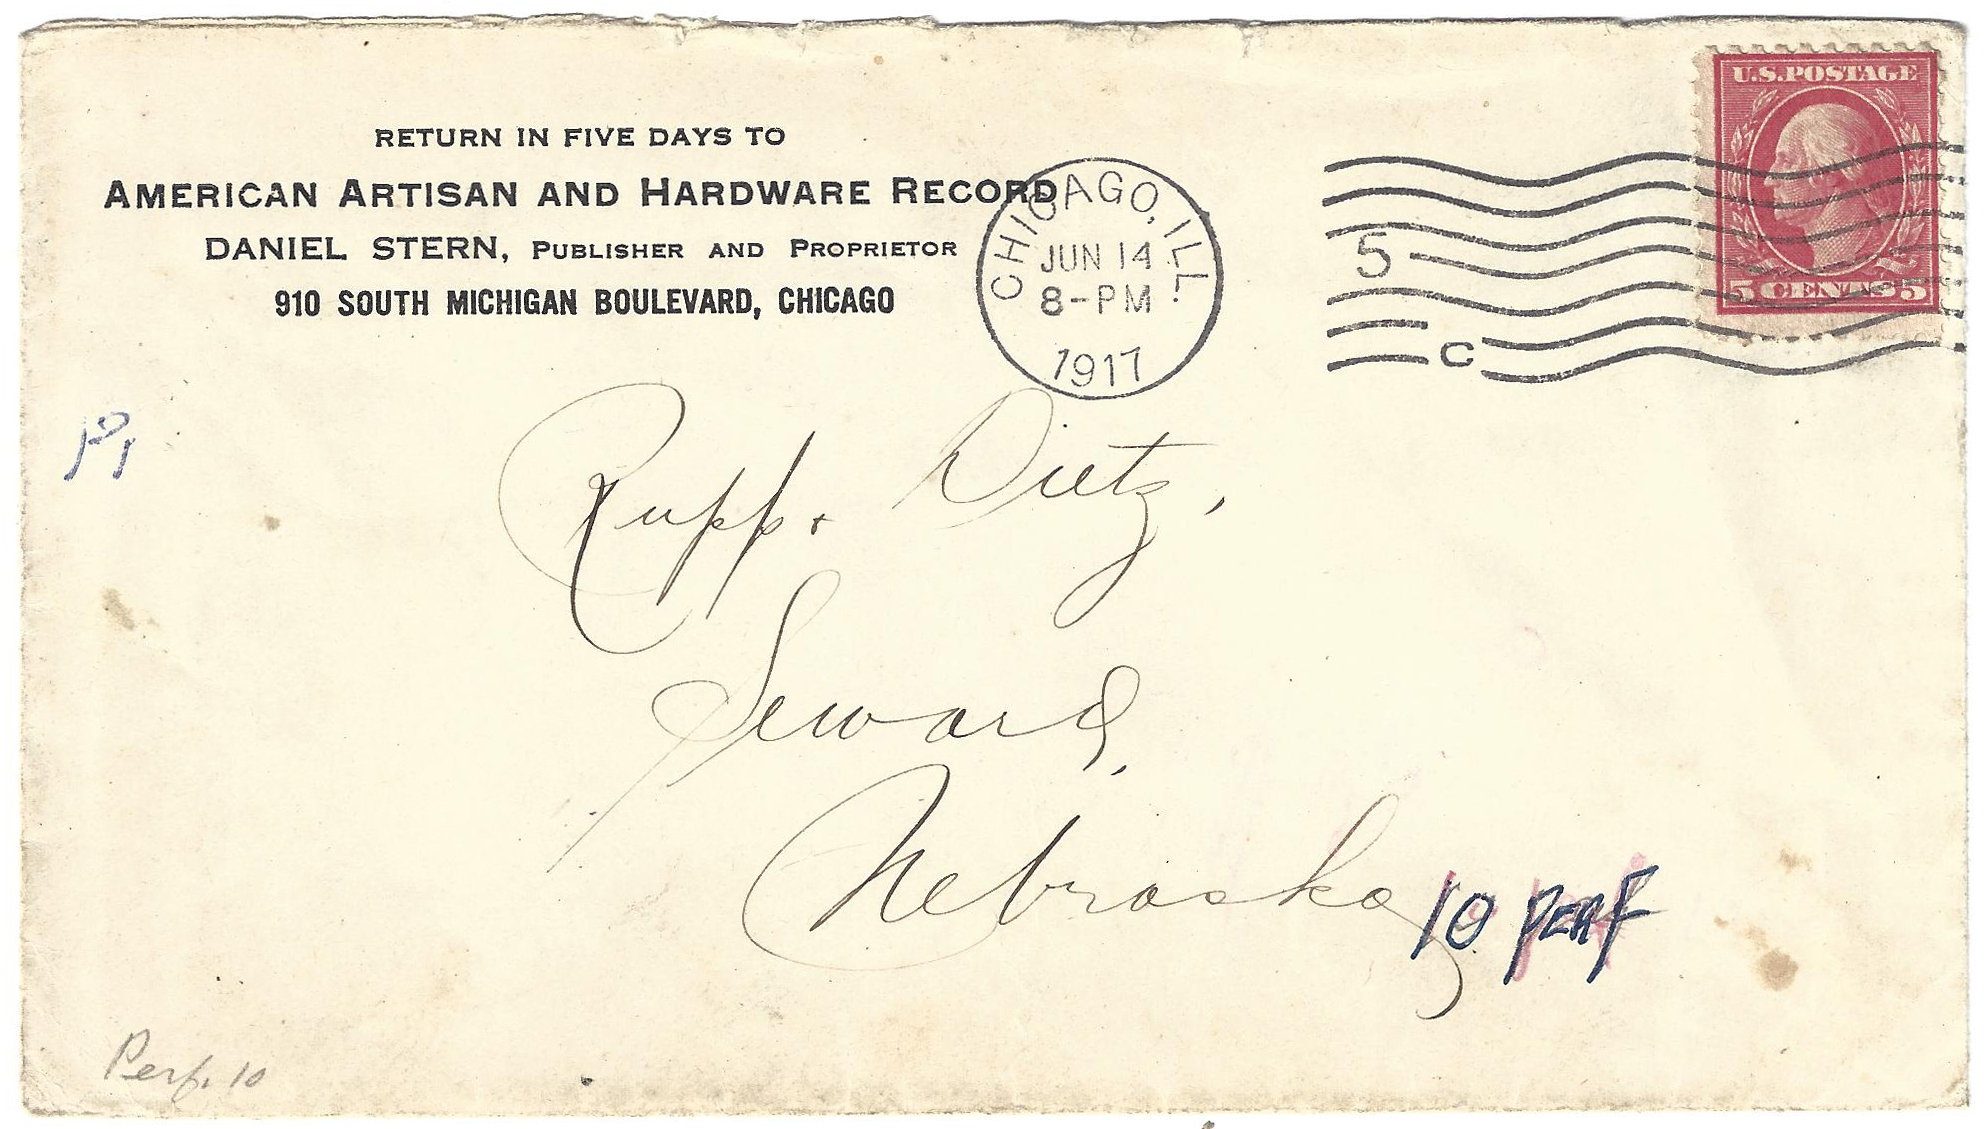 RETURN IN FIVE DAYS TO
AMERICAN ARTISAN AND HARDWARE RECORD
DANIEL STERN, PUBLISHER AND PROPRIETOR
910 SOUTH MICHIGAN BOULEVARD, CHICAGO
CHICAGO, ILL.
JUN 14
8-PM
1917
5
C
U.S. POSTAGE
5 CENTS 5
Rupp & Dietz,
Seward,
Nebraska
10 PERF
Perf. 10